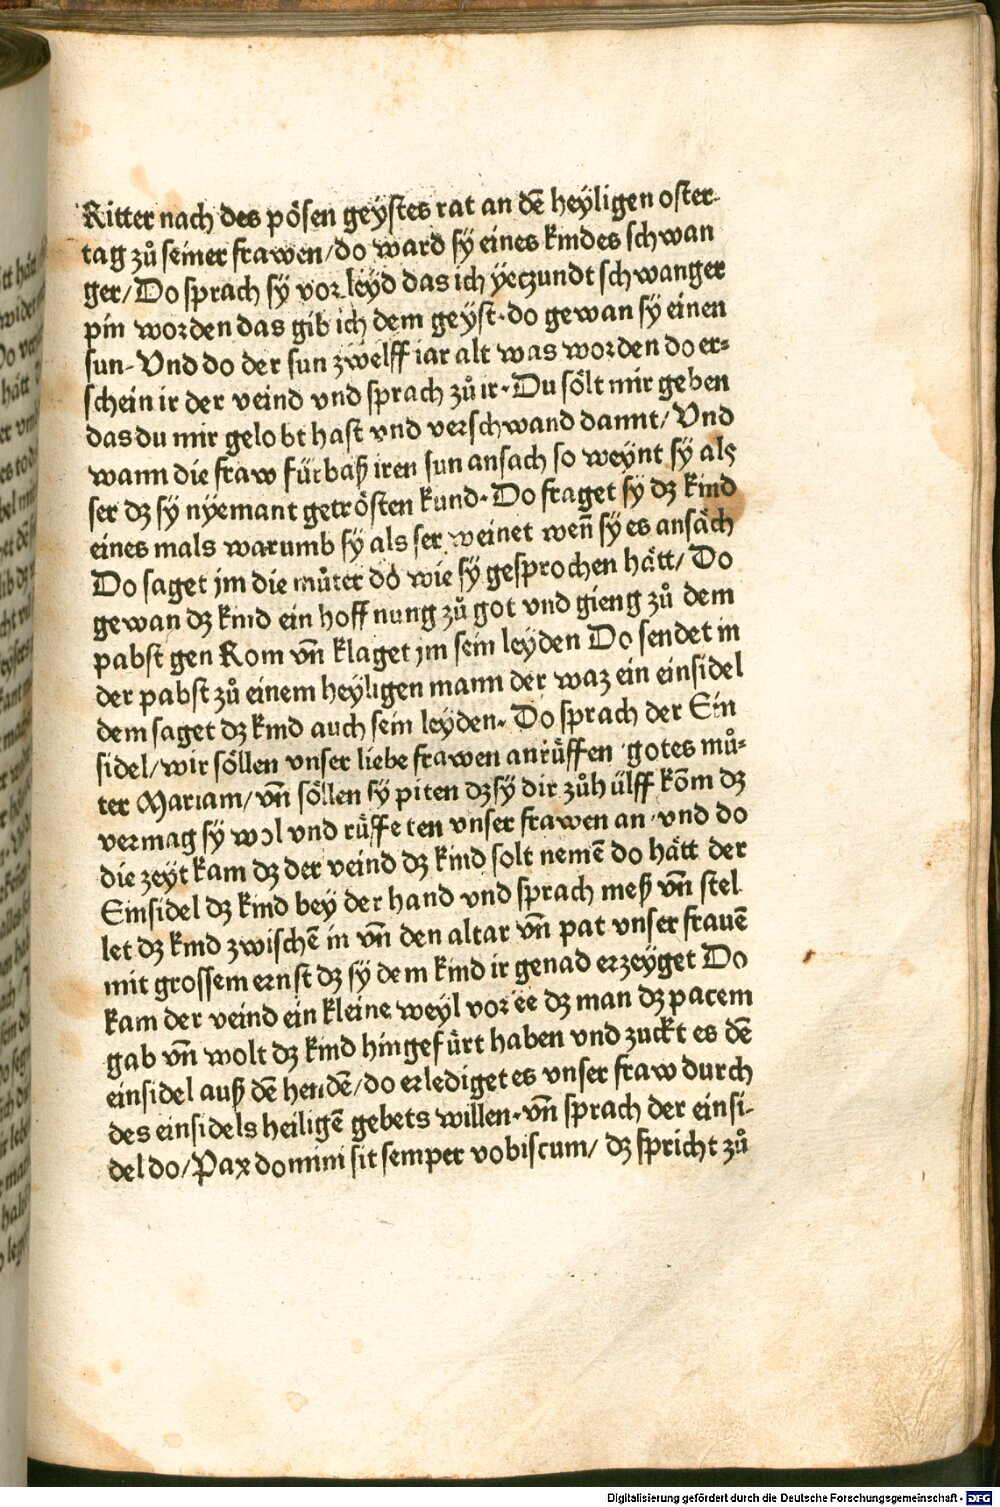 Ritter nach des pösen geÿstes rat an dē heÿligen oster-
tag zů seiner frawen/do ward sÿ eines kindes schwan
ger/Do sprach sÿ vor leÿd das ich ÿetzundt schwanger
pin worden das gib ich dem geÿst·do gewan sÿ einen
sun-Vnd do der sun zwelff iar alt was worden do er=
schein ir der veind vnd sprach zů ir·Du sölt mir geben
das du mir gelobt hast vnd verschwand damit/Vnd
wann die fraw fürbaß iren sun ansach so weÿnt sÿ als
ser dz sÿ nÿemant getrösten kund·Do fraget sÿ dz kind
eines mals warumb sÿ als ser weinet wen̄ sÿ es ansäch
Do saget jm die můter do wie sÿ gesprochen hätt/Do
gewan dz kind ein hoffnung zů got vnd gieng zů dem
pabst gen Rom vn̄ klaget jm sein leÿden Do sendet in
der pabst zů einem heÿligen mann der waz ein einsidel
dem saget dz kind auch sein leÿden·Do sprach der Ein
sidel/wir söllen vnser liebe frawen anrüffen gotes mů=
ter Mariam/vn̄ söllen sÿ piten dz sÿ dir zů hülff kōm dz
vermag sÿ wol vnd rüffeten vnser frawen an·vnd do
die zeÿt kam dz der veind dz kind solt nemē do hätt der
Einsidel dz kind beÿ der hand vnd sprach meß vn̄ stel
let dz kind zwischē in vn̄ den altar vn̄ pat vnser frauē
mit grossem ernst dz sÿ dem kind ir genad erzeÿget Do
kam der veind ein kleine weÿl vor ee dz man dz pacem
gab vn̄ wolt dz kind hingefürt haben vnd zuckt es dē
einsidel auß dē hendē/do erlediget es vnser fraw durch
des einsidels heiligē gebets willen·vn̄ sprach der einsi-
del do/Pax domini sit semper vobiscum/dz spricht zů
Digitalisierung gefördert durch die Deutsche Forschungsgemeinschaft - DFG